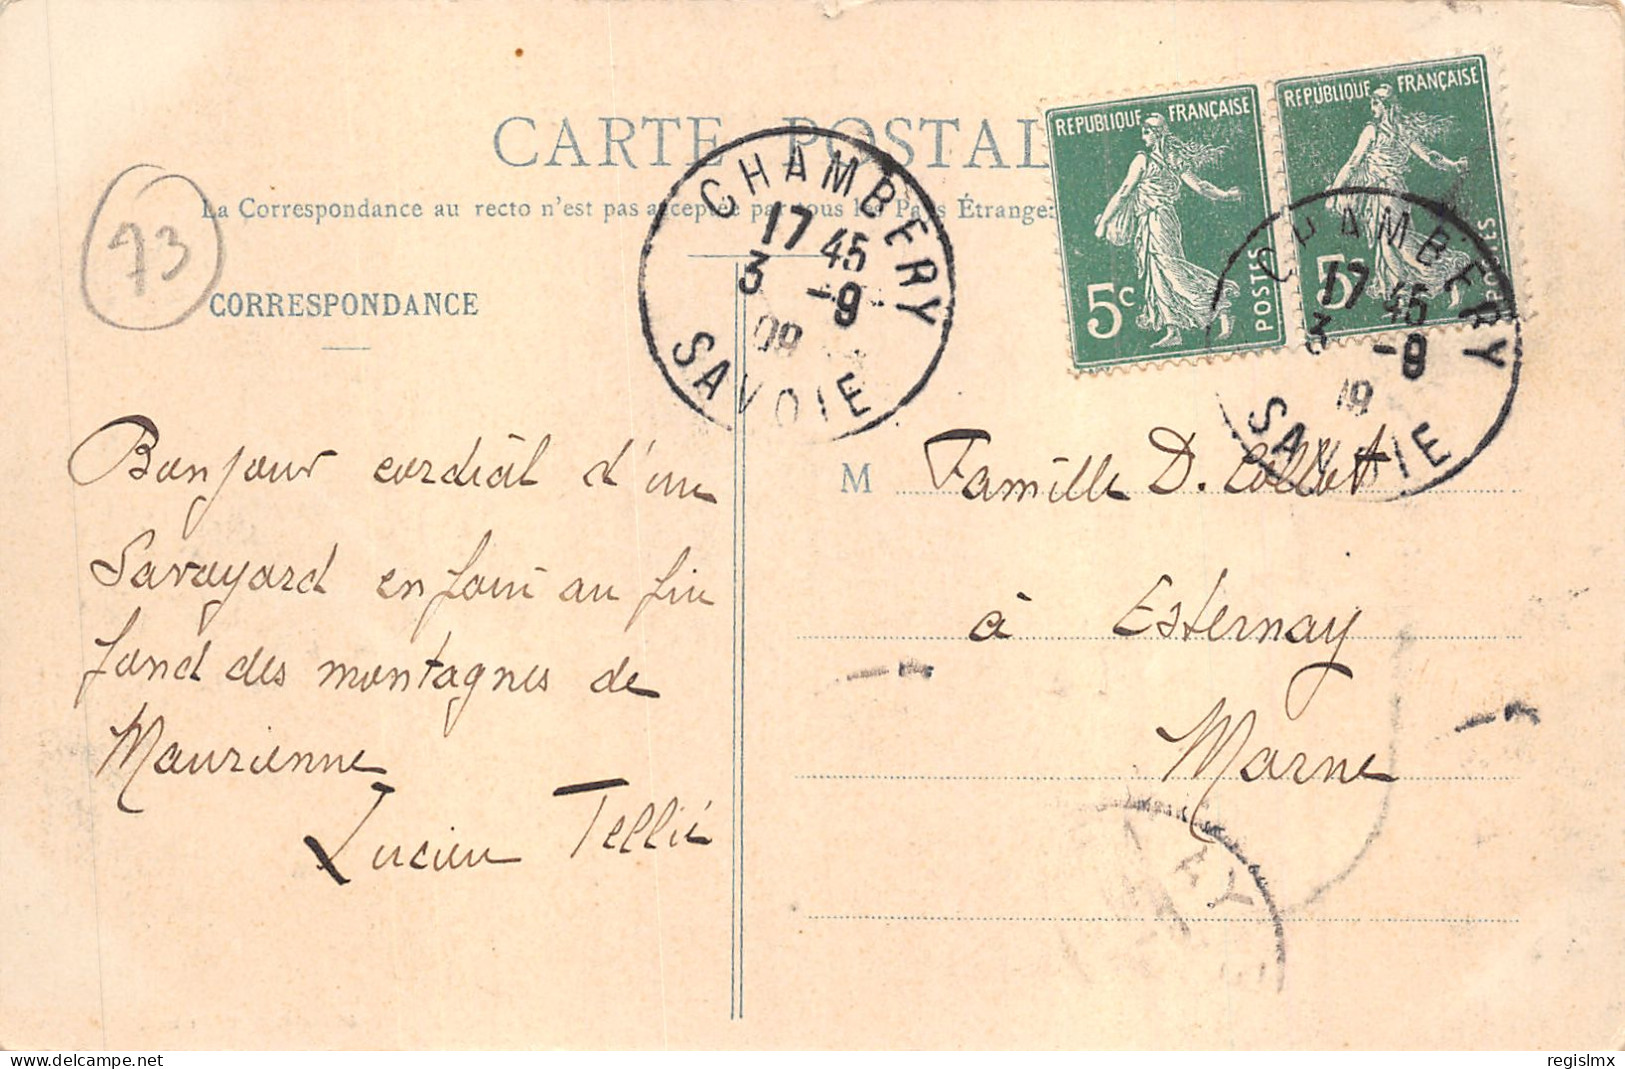 CARTE POSTAL
La Correspondance au recto n'est pas acceptée par tous les Pays Étrange
CORRESPONDANCE
73
CHAMBERY
17 45
3 -9
09
SAVOIE
REPUBLIQUE FRANÇAISE
5c
POSTES
REPUBLIQUE FRANÇAISE
5c
POSTES
CHAMBERY
17 45
3 -9
09
SAVOIE
Bonjour cordial d'un
Savoyard enfoui au fin
fond des montagnes de
Maurienne
Lucien Tellié
M Famille D. Collet
à Esternay
Marne
delcampe.net
regislmx